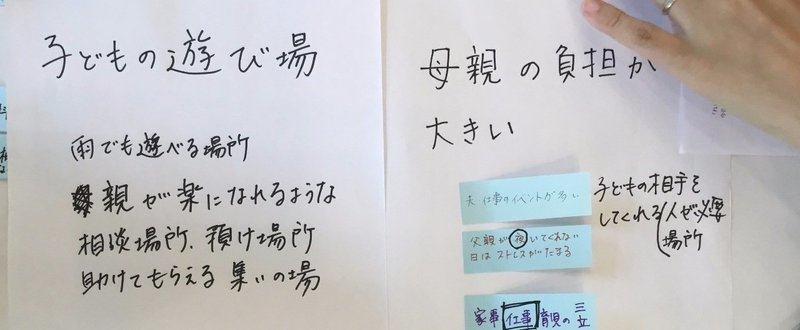 子どもの遊び場
雨でも遊べる場所
親が楽になれるような
相談場所、預け場所
助けてもらえる集いの場
母親の負担が
大きい
夫 仕事のイベントが多い
父親が夜いてくれない
日はストレスがたまる
家事 仕事 育児の三立
子どもの相手を
してくれる人が必要
場所